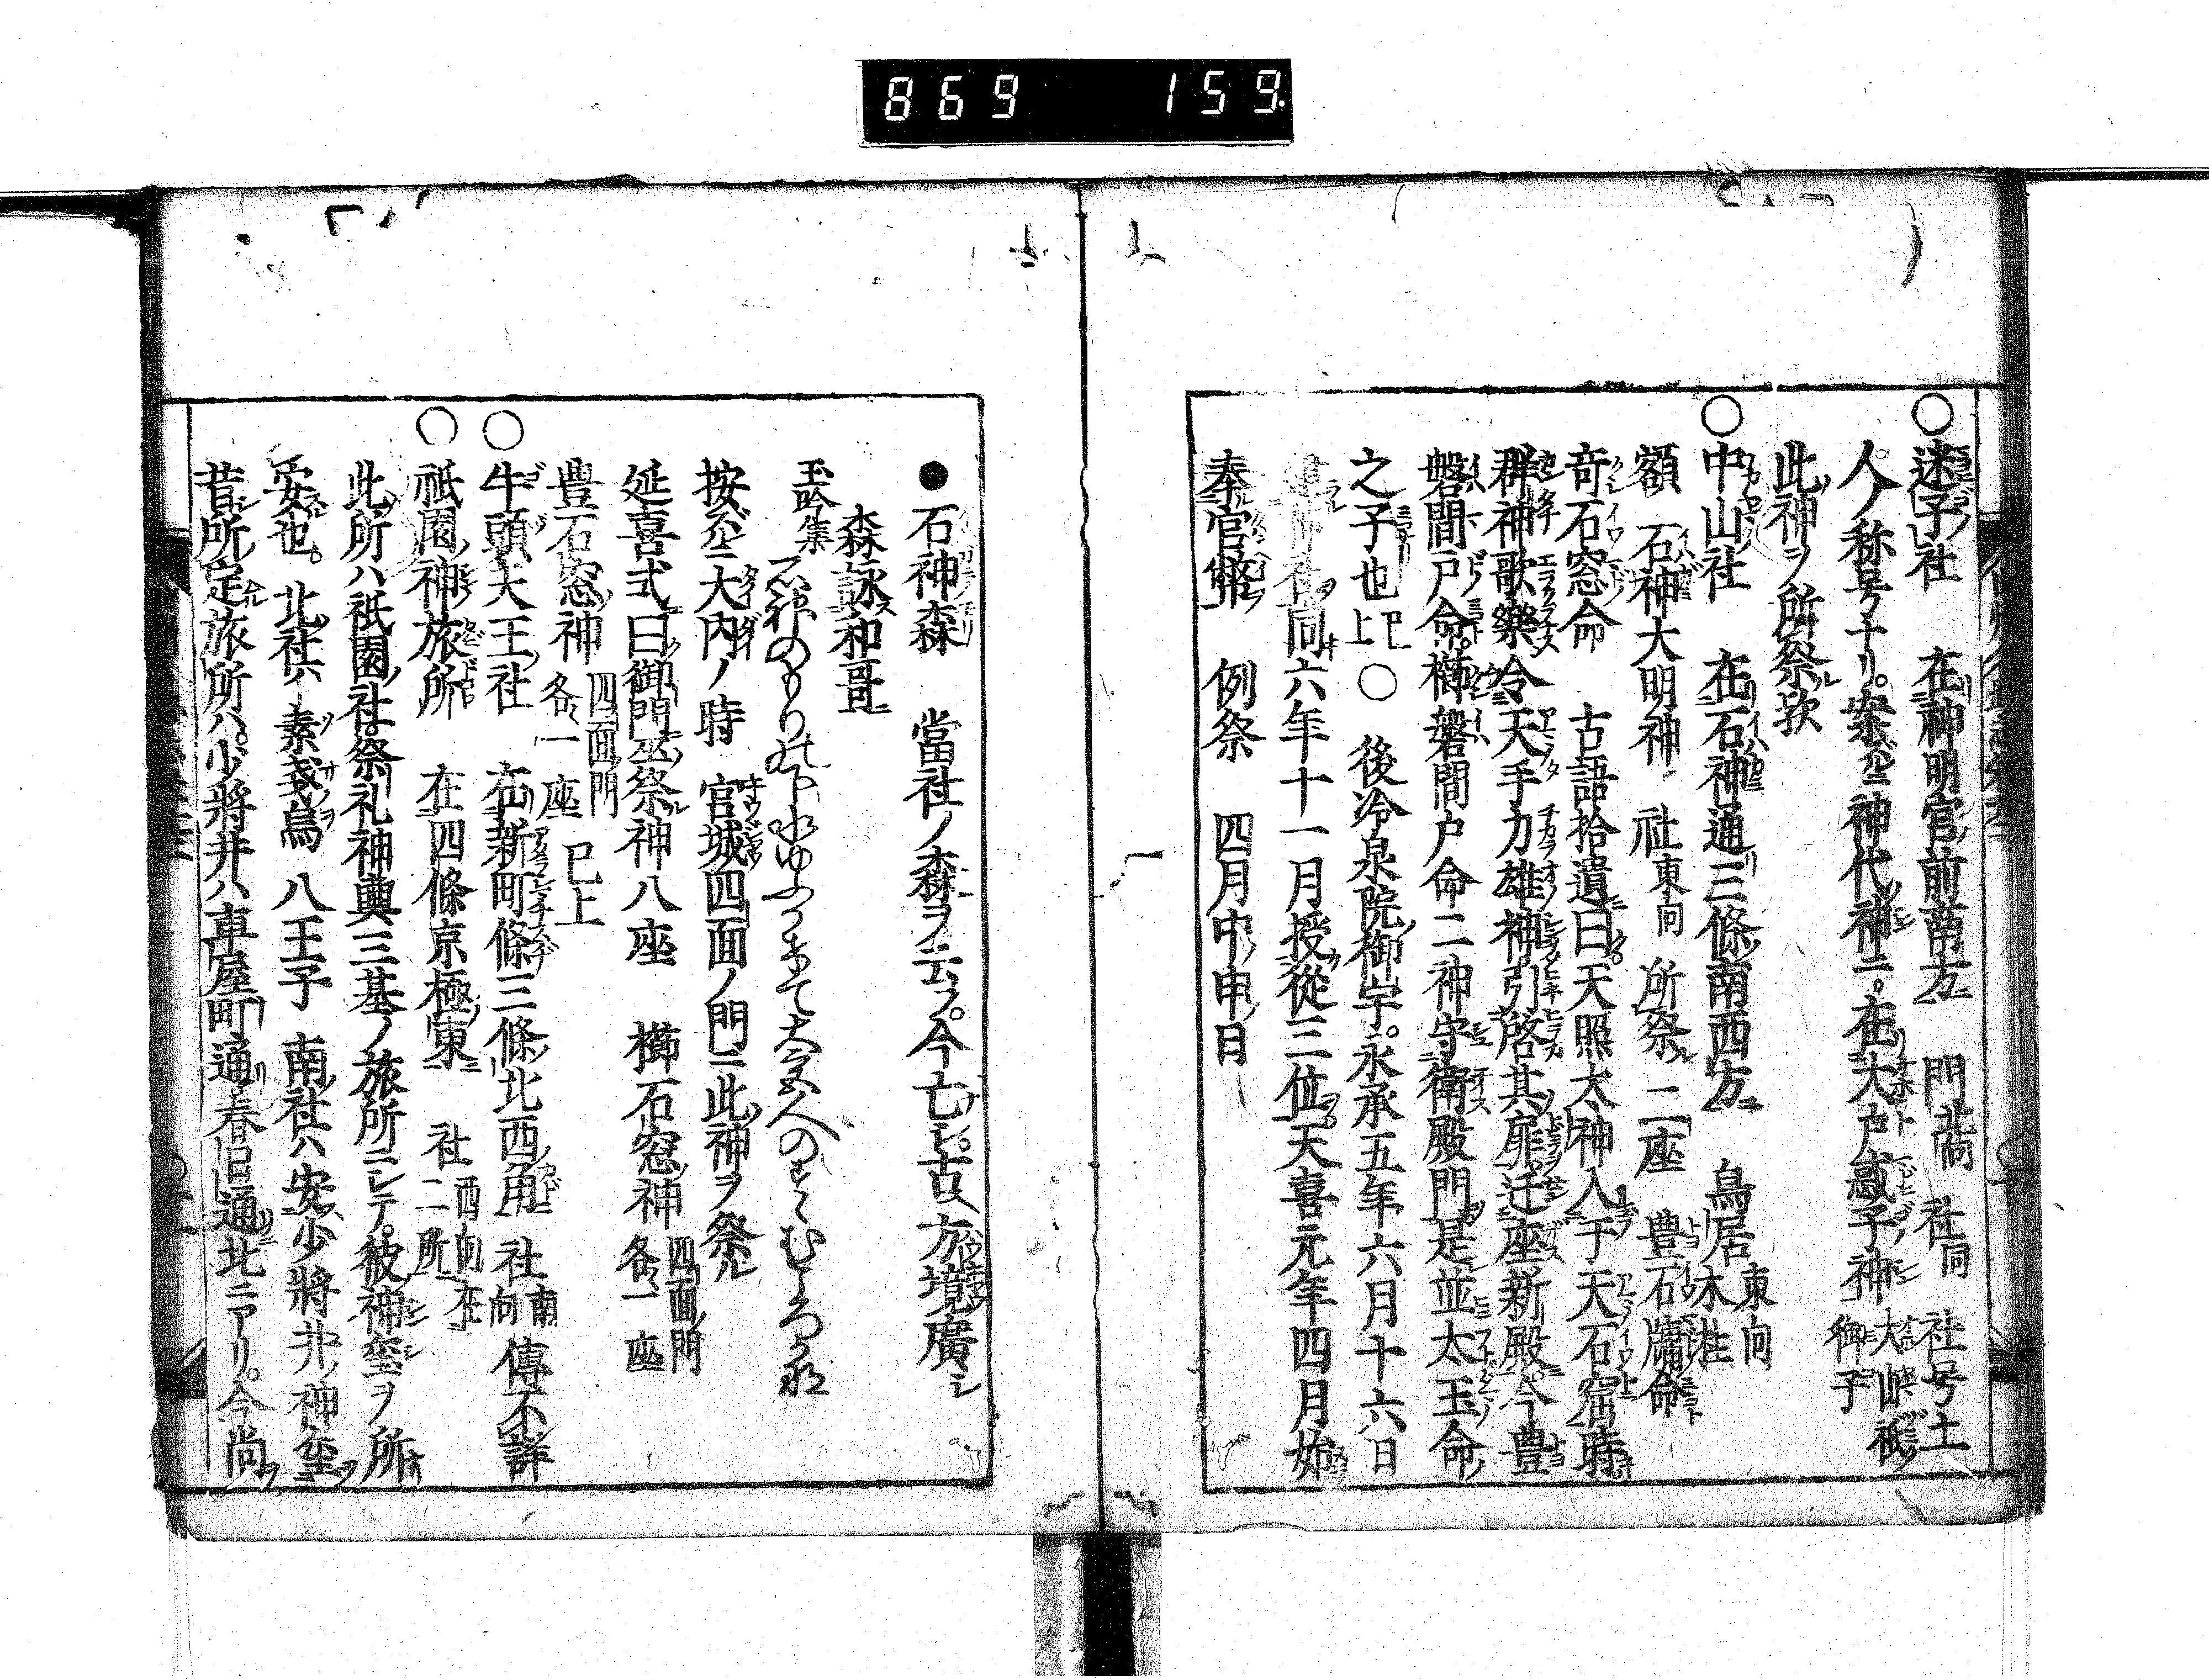 869 159
○迷子社 在神明宮前南方 門北向 社同 社号土
人ノ称号ナリ。案ズルニ神代神ニ。在大戸惑子神 大山祇御子
此神ヲ所祭歟
○中山社 在石神通三條南西方 鳥居東向木柱
額 石神大明神 社東向 所祭二座 豊石牖命
奇石窓命 古語拾遺曰。天照太神入于天石窟時
群神歌樂令天手力雄神引啓其扉迁座新殿。今豊
磐間戸命。櫛磐間戸命二神守衛殿門是並太玉命
之子也 已上 ○後冷泉院御宇。永承五年六月十六日
社同六年十一月授從三位。天喜元年四月始
奉官幣 例祭 四月中申日
●石神森 當社ノ森ヲ云フ。今亡シ。古ヘ方境廣シ
森詠和哥
玉吟集
按ズルニ大内ノ時 宮城四面ノ門ニ此神ヲ祭ル
延喜式曰御門巫祭神八座 櫛石窓神 四面門各一座
豊石窓神 四面門各一座 已上
○牛頭天王社 在新町條三條北西角 社南向 傳不詳
○祇園神旅所 在四條京極東 社二所 西向ニ在
此所ハ祇園社祭礼神輿三基ノ旅所ニシテ。被神坐ヲ所
安也。北社ハ素戔烏 八王子 南社ハ安少將井ノ神坐ヲ
昔所定旅所ハ。少將井ハ車屋町通春日通北ニアリ。今尚